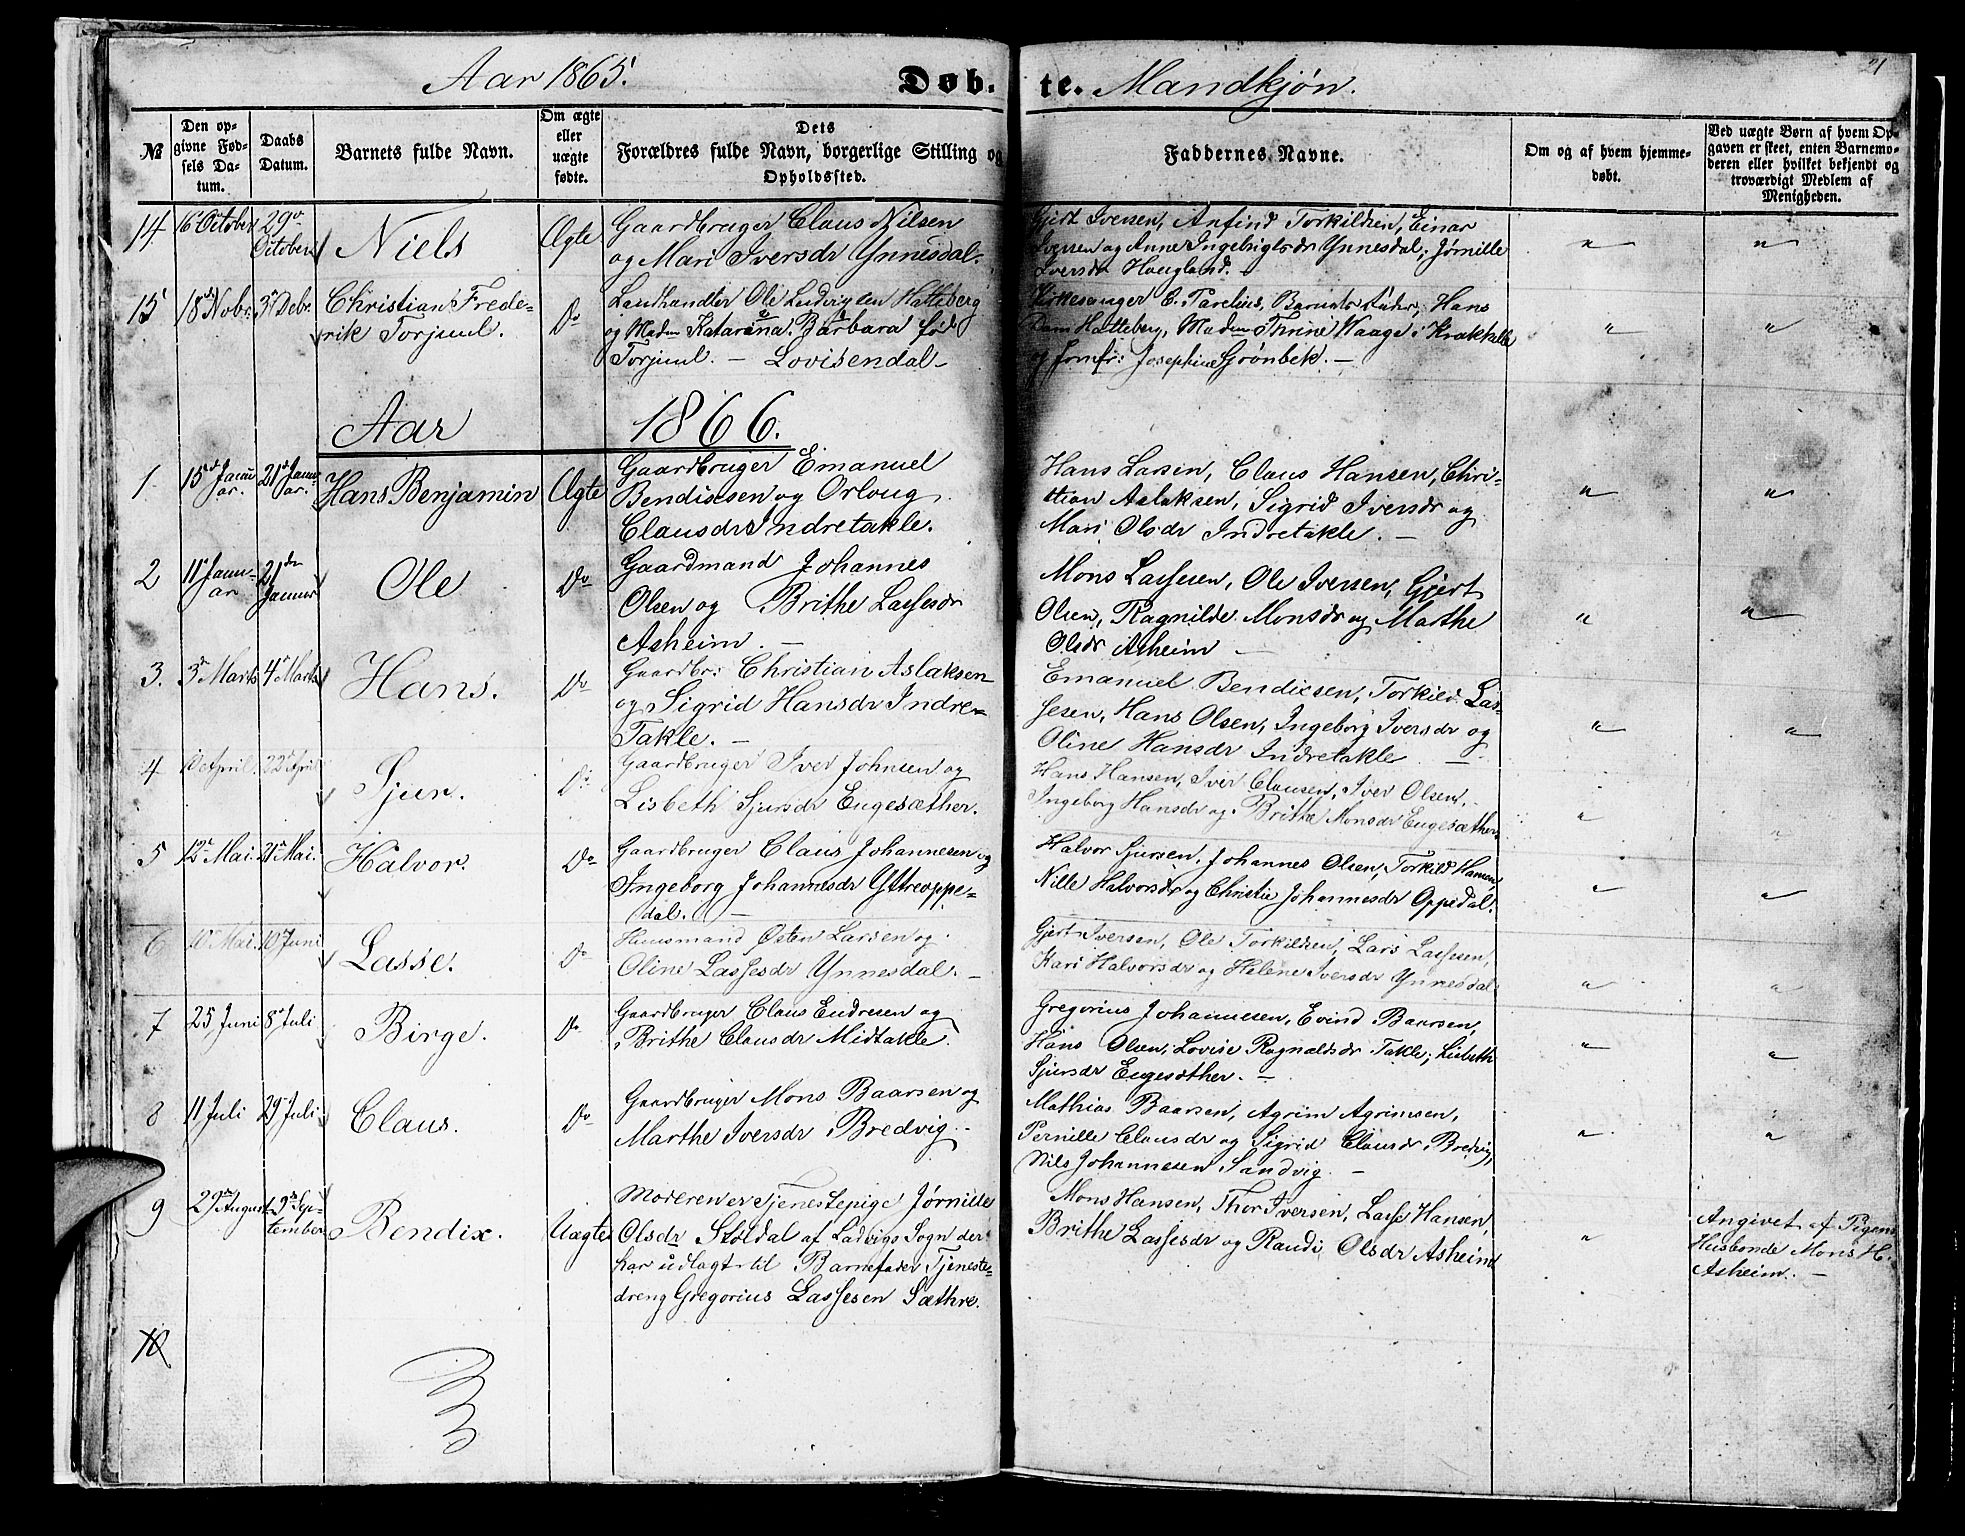 21
Aar 1865.
Døb. te. Mandkjøn.
№
Den op-
givne Fød-
sels Da-
tum.
Daabs
Datum.
Barnets fulde Navn.
Om ægte
eller
uægte
fødte.
Dets
Forældres fulde Navn, borgerlige Stilling og
Opholdssted.
Faddernes Navne.
Om og af hvem hjemme-
døbt.
Ved uægte Børn af hvem Op-
gaven er skeet, enten Barnemo-
deren eller hvilket bekjendt og
troværdigt Medlem af
Menigheden.
14. 16 October 29
October
Niels
Ægte
Gaardbruger Claus Nilsen
og Mari Iversdr Ynnesdal.
Gjert Iversen, Anfind Torkildsen, Einar
Iversen og Anne Ingebrigtsdr Ynnesdal; Jørnille
Iversdr Haugland.
" "
15 18 Nobr. 3 Debr.
Christian Frede-
rik Torjuul.
Do
Landhandler Ole Ludvigsen Hatteberg
og Madm Katarina Barbara fød
Torjuul. – Lovisendal –
Kirkesanger C. Parelius, Barnets Fader, Hans
Dam Hatteberg, Madm Thrine Waage i Krakhelle
og Jomfr: Josephine Grønbek. –
" "
Aar 1866.
1. 15 Janu-
ar. 21 Janu-
ar.
Hans Benjamin
Ægte
Gaardbruger Emanuel
Bendixsen og Orloug
Clausdr Indretakle.
Hans Larsen, Claus Hansen, Chri-
stian Aslaksen, Sigrid Iversdr og
Mari Olsdr Indretakle. –
" "
2 11 Janu-
ar 21
Januar
Ole
Do
Gaardmand Johannes
Olsen og Brithe Lassesdr
Asheim –
Mons Lassesen, Ole Iversen, Gjert
Olsen, Ragnilde Monsdr og Marthe
Olsdr Asheim –
" "
3. 3 Marts 4 Marts
Hans.
Do
Gaardbr: Christian Aslaksen
og Sigrid Hansdr Indre-
Takle. –
Emanuel Bendixsen, Torkild Las-
sesen, Hans Olsen, Ingeborg Iversdr og
Oline Hansdr Indretakle –
" "
4 April. 22 April
Sjur.
Do
Gaardbruger Iver Johnsen og
Lisbeth Sjursdr Engesæther.
Hans Hansen, Iver Clausen, Iver Olsen,
Ingeborg Hansdr og Brithe Monsdr Engesæther.
" "
5 12 Mai. 21 Mai.
Halvor.
Do
Gaardbruger Claus Johannesen og
Ingeborg Johannesdr Yttreoppe-
dal. –
Halvor Sjursen, Johannes Olsen, Torkild Hansen,
Nille Halvorsdr og Christie Johannesdr Oppedal.
" "
6 10 Mai. 10 Juni
Lasse.
Do
Huusmand Østen Larsen og
Oline Lassesdr Ynnesdal. –
Gjert Iversen, Ole Torkildsen, Lars Lassesen,
Kari Halvorsdr og Helene Iversdr Ynnesdal
" "
7 25 Juni 8 Juli
Birge.
Do
Gaardbruger Claus Endresen og
Brithe Clausdr Midtakle.
Gregorius Johannesen, Evind Baarsen,
Hans Olsen, Lovise Ragnaldsdr Takle; Lisbeth
Sjursdr Engesæther. –
" "
8 11 Juli 29 Juli.
Claus.
Do
Gaardbruger Mons Baarsen og
Marthe Iversdr Bredvig. –
Mathias Baarsen, Agrim Agrimsen,
Pernille Clausdr og Sigrid Clausdr Bredvig,
Nils Johannesen Sandvig. –
" "
9 29 August 23 Sep-
tember
Bendix.
Uægte
Moderen er Tjenestepige Jørnille
Olsdr Støldal af Ladvigs Sogn der
har udlagt til Barnefader Tjeneste-
dreng Gregorius Lassesen Sæthre.
Mons Hansen, Thor Iversen, Lasse Hansen,
Brithe Lassesdr og Randi Olsdr Asheim
"
Angivet af Pigens
Husbonde Mons H.
Asheim. –
10